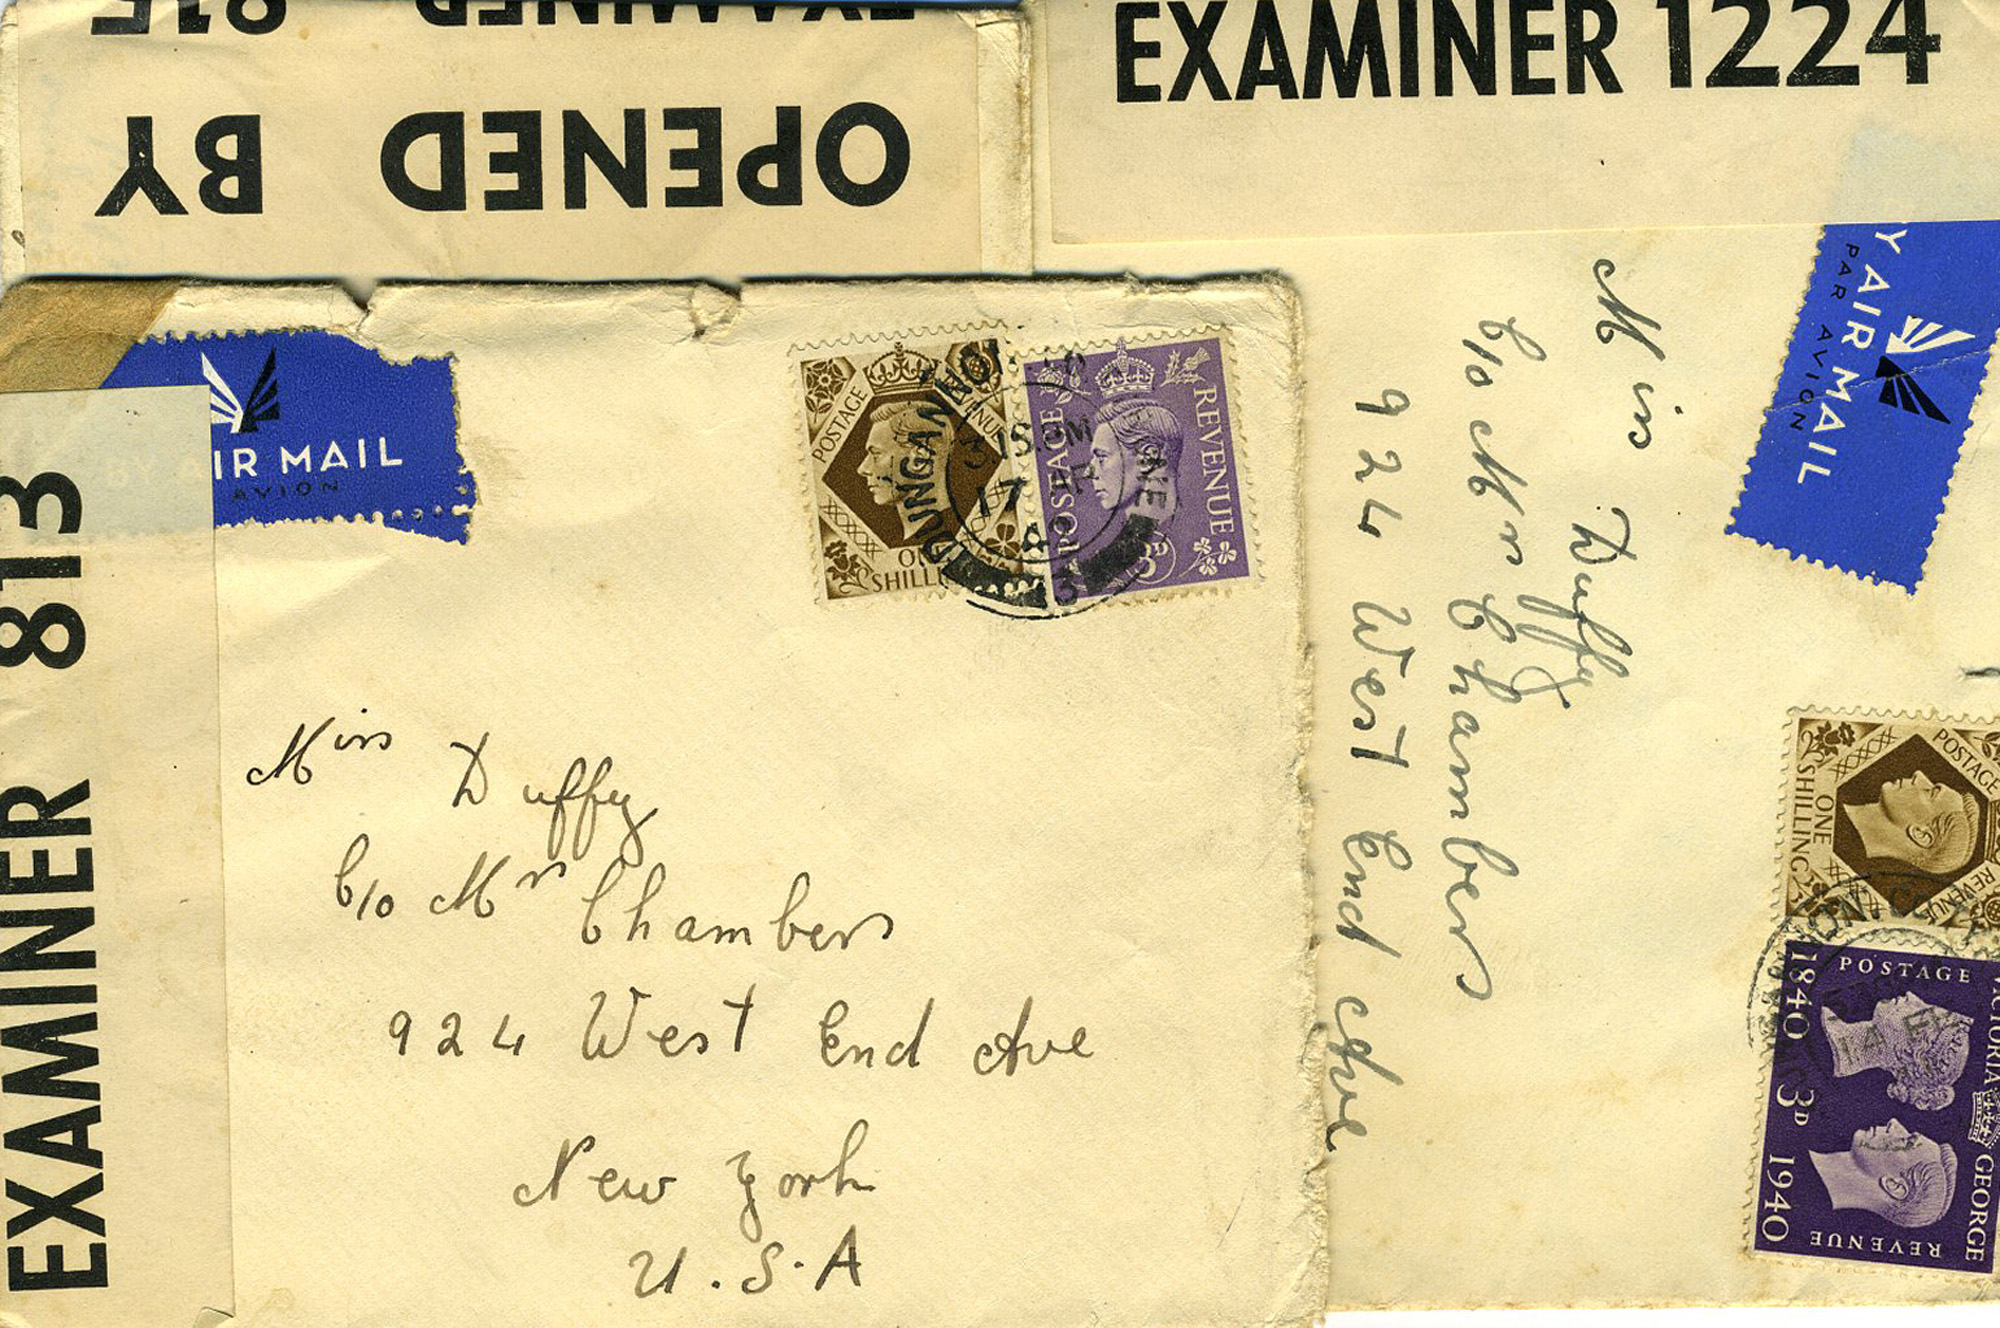 OPENED BY
EXAMINER
EXAMINER 1224
BY AIR MAIL
PAR AVION
Miss Duffy
C/o Mrs Chambers
924 West End Ave
POSTAGE
REVENUE
ONE
SHILLING
POSTAGE
REVENUE
VICTORIA
GEORGE
1840 3D 1940
EXAMINER 813
AIR MAIL
AVION
POSTAGE
ONE
POSTAGE
REVENUE
3D
DUNGANNON
TYRONE
17
3
Miss Duffy
C/o Mrs Chambers
924 West End Ave
New York
U.S.A